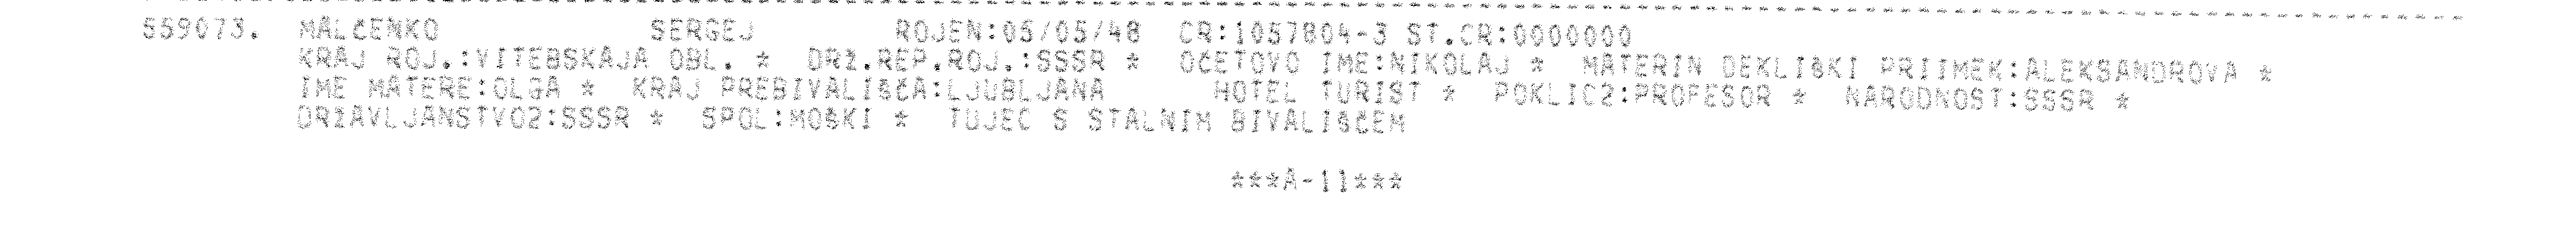 559073. MALČENKO SERGEJ ROJEN:05/05/48 CR:1057804-3 ST.CR:0000000
KRAJ ROJ.:VITEBSKAJA OBL. * DRŽ.REP.ROJ.:SSSR * OČETOVO IME:NIKOLAJ * MATERIN DEKLIŠKI PRIIMEK:ALEKSANDROVA *
IME MATERE:OLGA * KRAJ PREBIVALIŠČA:LJUBLJANA HOTEL TURIST * POKLIC2:PROFESOR * NARODNOST:SSSR *
DRŽAVLJANSTVO2:SSSR * SPOL:MOŠKI * TUJEC S STALNIM BIVALIŠČEM
***A-11***